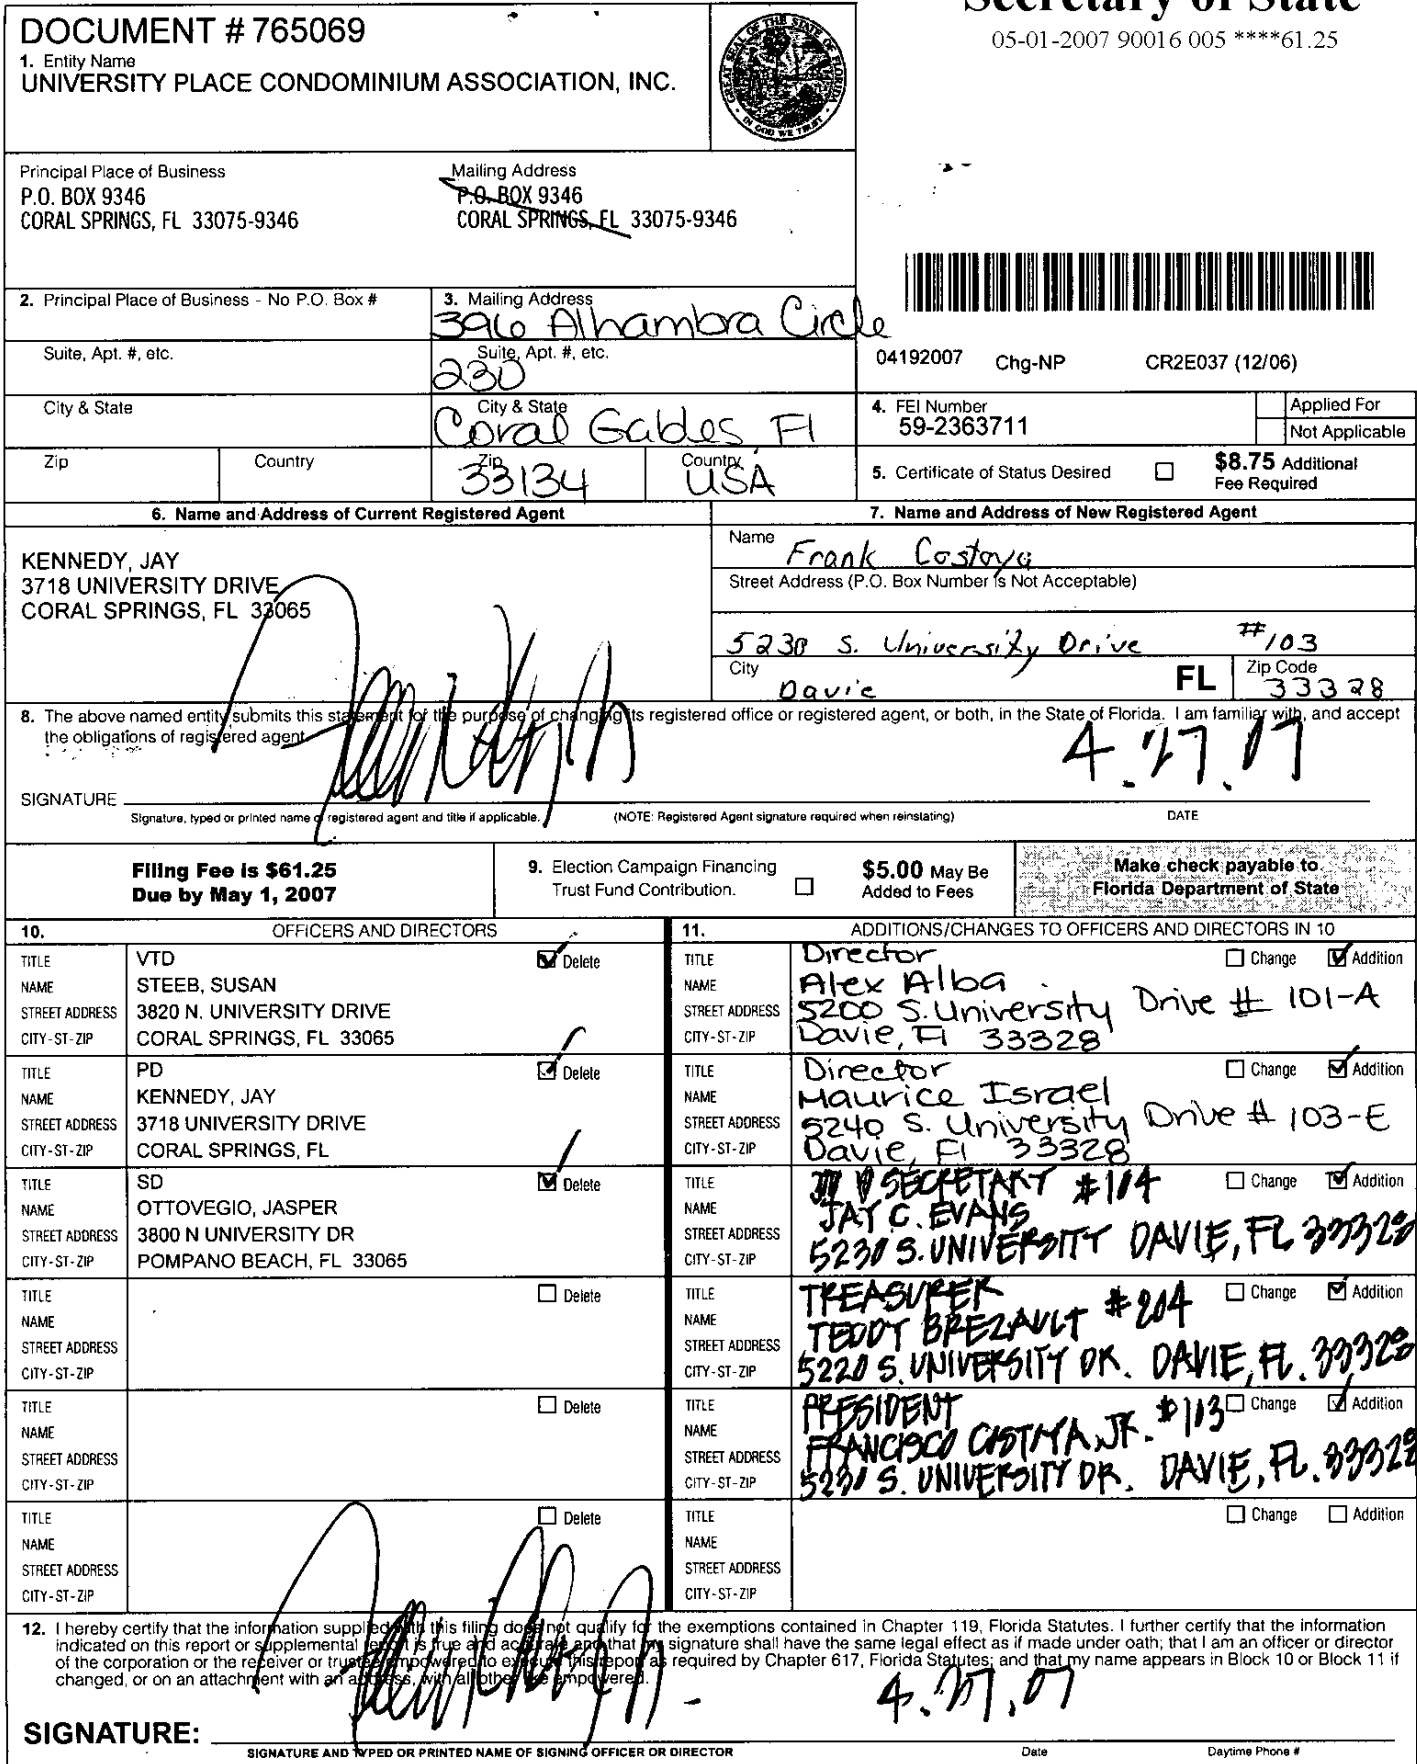 Secretary of State
05-01-2007 90016 005 ****61.25
DOCUMENT # 765069
1. Entity Name
UNIVERSITY PLACE CONDOMINIUM ASSOCIATION, INC.
GREAT SEAL OF THE STATE OF FLORIDA
IN GOD WE TRUST
Principal Place of Business
P.O. BOX 9346
CORAL SPRINGS, FL 33075-9346
Mailing Address
P.O. BOX 9346
CORAL SPRINGS, FL 33075-9346
2. Principal Place of Business - No P.O. Box #
3. Mailing Address
396 Alhambra Circle
Suite, Apt. #, etc.
Suite, Apt. #, etc.
230
04192007 Chg-NP CR2E037 (12/06)
City & State
City & State
Coral Gables, Fl
4. FEI Number
59-2363711
Applied For
Not Applicable
Zip
Country
Zip
33134
Country
USA
5. Certificate of Status Desired
$8.75 Additional
Fee Required
6. Name and Address of Current Registered Agent
KENNEDY, JAY
3718 UNIVERSITY DRIVE
CORAL SPRINGS, FL 33065
7. Name and Address of New Registered Agent
Name
Frank Costoya
Street Address (P.O. Box Number is Not Acceptable)
5230 S. University Drive #103
City
Davie
FL
Zip Code
33328
8. The above named entity submits this statement for the purpose of changing its registered office or registered agent, or both, in the State of Florida. I am familiar with, and accept
the obligations of registered agent.
4.27.07
SIGNATURE
Signature, typed or printed name of registered agent and title if applicable.
(NOTE: Registered Agent signature required when reinstating)
DATE
Filing Fee is $61.25
Due by May 1, 2007
9. Election Campaign Financing
Trust Fund Contribution.
$5.00 May Be
Added to Fees
Make check payable to
Florida Department of State
10. OFFICERS AND DIRECTORS
TITLE VTD Delete
NAME STEEB, SUSAN
STREET ADDRESS 3820 N. UNIVERSITY DRIVE
CITY-ST-ZIP CORAL SPRINGS, FL 33065
TITLE PD Delete
NAME KENNEDY, JAY
STREET ADDRESS 3718 UNIVERSITY DRIVE
CITY-ST-ZIP CORAL SPRINGS, FL
TITLE SD Delete
NAME OTTOVEGIO, JASPER
STREET ADDRESS 3800 N UNIVERSITY DR
CITY-ST-ZIP POMPANO BEACH, FL 33065
TITLE Delete
NAME
STREET ADDRESS
CITY-ST-ZIP
TITLE Delete
NAME
STREET ADDRESS
CITY-ST-ZIP
TITLE Delete
NAME
STREET ADDRESS
CITY-ST-ZIP
11. ADDITIONS/CHANGES TO OFFICERS AND DIRECTORS IN 10
TITLE Director Change Addition
NAME Alex Alba
STREET ADDRESS 5200 S. University Drive # 101-A
CITY-ST-ZIP Davie, Fl 33328
TITLE Director Change Addition
NAME Maurice Israel
STREET ADDRESS 5240 S. University Drive # 103-E
CITY-ST-ZIP Davie, Fl 33328
TITLE SECRETARY #104 Change Addition
NAME JAY C. EVANS
STREET ADDRESS 5230 S. UNIVERSITY DAVIE, FL 33328
CITY-ST-ZIP
TITLE TREASURER #204 Change Addition
NAME TEDDY BREZAULT
STREET ADDRESS
CITY-ST-ZIP 5220 S. UNIVERSITY DR. DAVIE, FL. 33328
TITLE PRESIDENT #103 Change Addition
NAME FRANCISCO COSTOYA, JR.
STREET ADDRESS
CITY-ST-ZIP 5230 S. UNIVERSITY DR. DAVIE, FL. 33328
TITLE Change Addition
NAME
STREET ADDRESS
CITY-ST-ZIP
12. I hereby certify that the information supplied with this filing does not qualify for the exemptions contained in Chapter 119, Florida Statutes. I further certify that the information
indicated on this report or supplemental report is true and accurate and that my signature shall have the same legal effect as if made under oath; that I am an officer or director
of the corporation or the receiver or trustee empowered to execute this report as required by Chapter 617, Florida Statutes; and that my name appears in Block 10 or Block 11 if
changed, or on an attachment with an address, with all other like empowered.
4.27.07
SIGNATURE:
SIGNATURE AND TYPED OR PRINTED NAME OF SIGNING OFFICER OR DIRECTOR
Date
Daytime Phone #